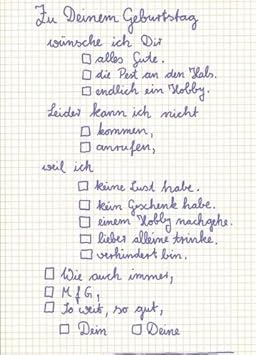 Zu Deinem Geburtstag
wünsche ich Dir
☐ alles Gute.
☐ die Pest an den Hals.
☐ endlich ein Hobby.
Leider kann ich nicht
☐ kommen,
☐ anrufen,
weil ich
☐ keine Lust habe.
☐ kein Geschenk habe.
☐ einem Hobby nachgehe.
☐ lieber alleine trinke.
☐ verhindert bin.
☐ Wie auch immer,
☐ MfG,
☐ So weit, so gut,
☐ Dein ☐ Deine